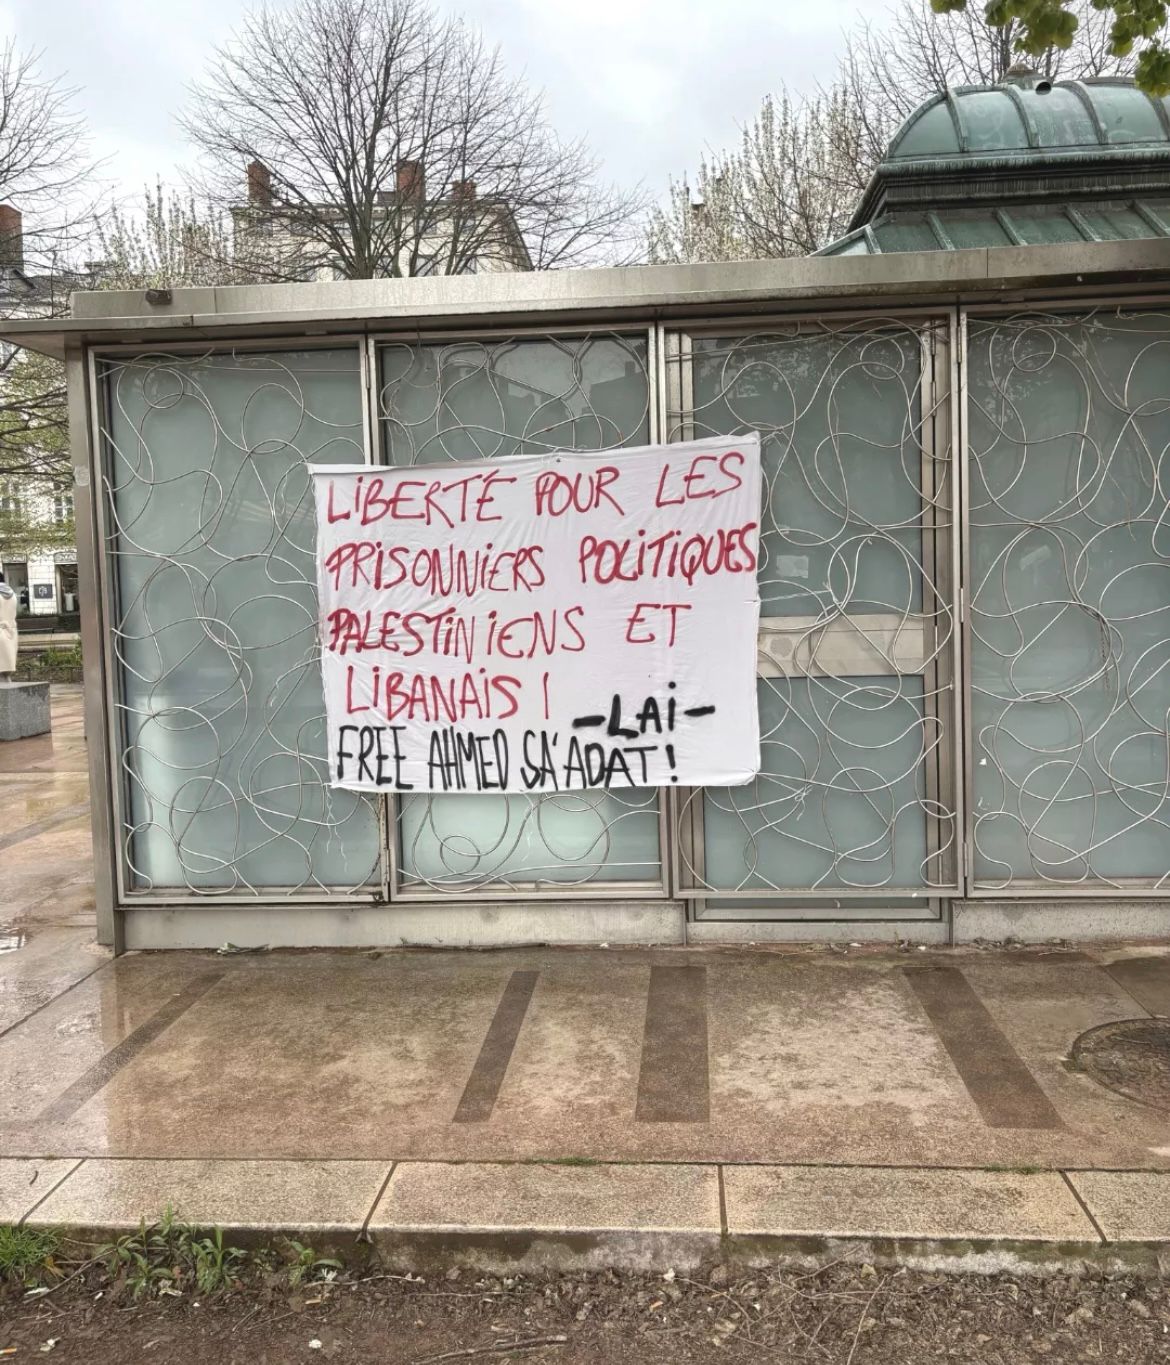 LIBERTÉ POUR LES
PRISONNIERS POLITIQUES
PALESTINIENS ET
LIBANAIS !
-LAI-
FREE AHMED SA'ADAT !